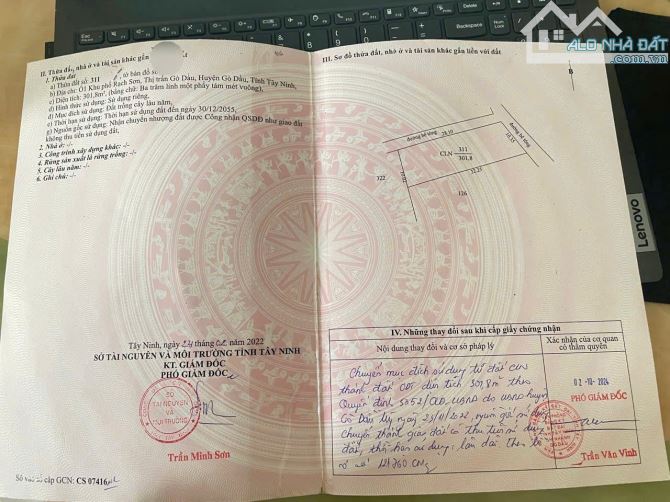 ALO NHÀ ĐẤT
.com.vn
Lenovo
II. Thửa đất, nhà ở và tài sản khác gắn liền với đất
1. Thửa đất:
a) Thửa đất số: 311 tờ bản đồ số:
b) Địa chỉ: Ô1 Khu phố Rạch Sơn, Thị trấn Gò Dầu, Huyện Gò Dầu, Tỉnh Tây Ninh,
c) Diện tích: 301,8m², (bằng chữ: Ba trăm linh một phẩy tám mét vuông),
d) Hình thức sử dụng: Sử dụng riêng,
đ) Mục đích sử dụng: Đất trồng cây lâu năm,
e) Thời hạn sử dụng: Thời hạn sử dụng đất đến ngày 30/12/2055,
g) Nguồn gốc sử dụng: Nhận chuyển nhượng đất được Công nhận QSDĐ như giao đất
không thu tiền sử dụng đất,
2. Nhà ở: -/-
3. Công trình xây dựng khác: -/-
4. Rừng sản xuất là rừng trồng: -/-
5. Cây lâu năm: -/-
6. Ghi chú: -/-
Tây Ninh, ngày 24 tháng 02 năm 2022
SỞ TÀI NGUYÊN VÀ MÔI TRƯỜNG TỈNH TÂY NINH
KT. GIÁM ĐỐC
PHÓ GIÁM ĐỐC
SỞ
TÀI NGUYÊN
VÀ
MÔI TRƯỜNG
Trần Minh Sơn
Số vào sổ cấp GCN: CS 07416
III. Sơ đồ thửa đất, nhà ở và tài sản khác gắn liền với đất
B
đường bê tông
29.10
đường bê tông
10.35
CLN
311
301.8
322
32.25
126
IV. Những thay đổi sau khi cấp giấy chứng nhận
Nội dung thay đổi và cơ sở pháp lý
Xác nhận của cơ quan
có thẩm quyền
Chuyển mục đích sử dụng từ đất CLN
thành đất ODT diện tích 301,8m² theo
Quyết định số 5052/QĐ-UBND do UBND huyện
Gò Dầu ký ngày 23/11/2022, nguồn gốc sử dụng
chuyển thành giao đất có thu tiền sử dụng
đất, thời hạn sử dụng: lâu dài theo
02-10-2024
PHÓ GIÁM ĐỐC
Trần Văn Vinh